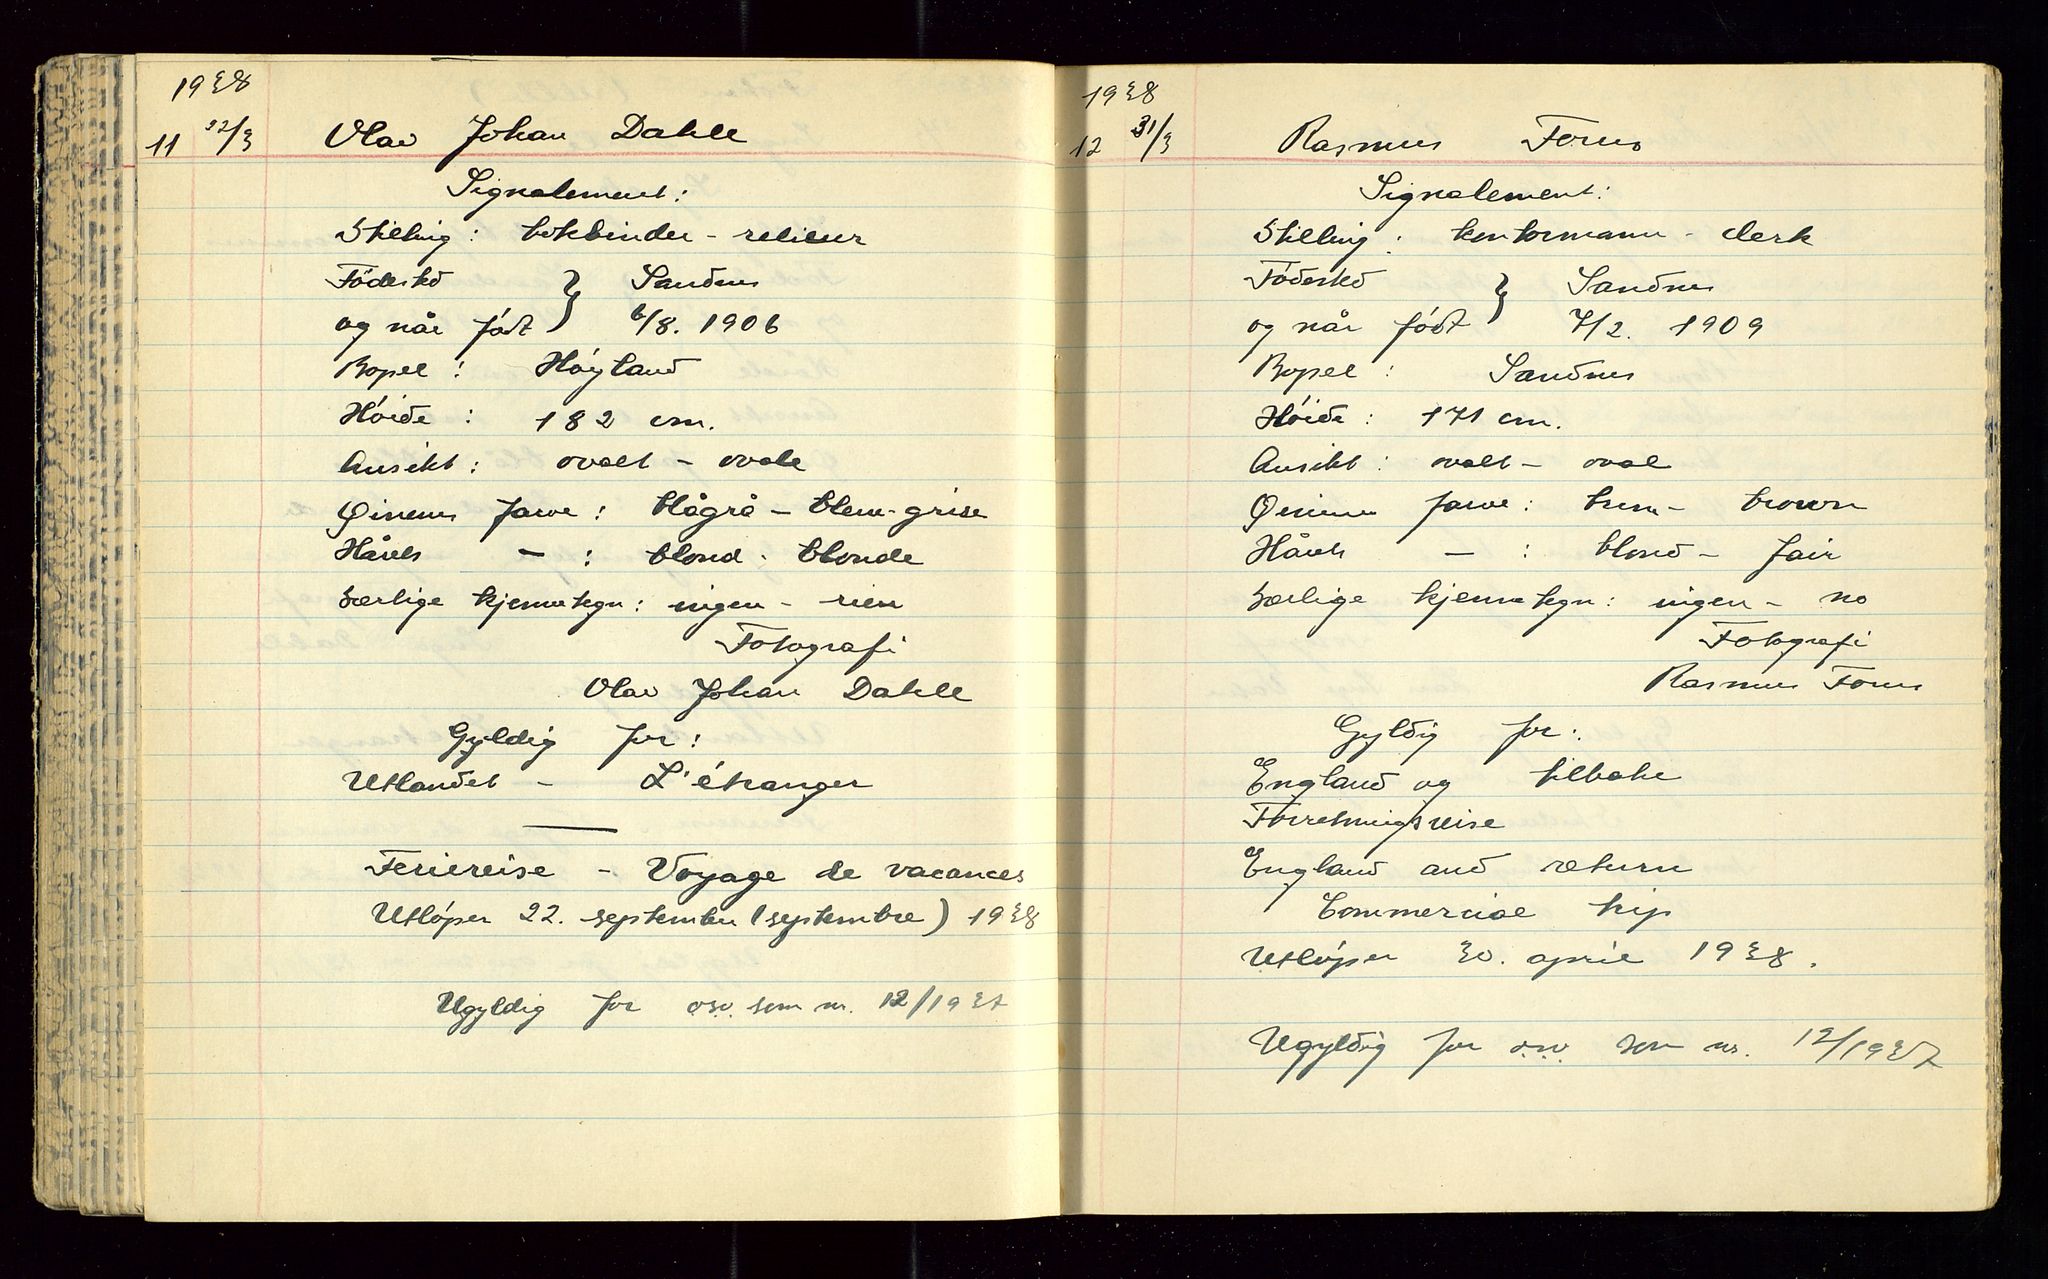 1938
11 22/3 Olav Johan Dahle
Signalement:
Stilling: bokbinder - relieur
Fødested
og når født } Sandnes
6/8. 1906
Bopel: Høyland
Høide: 182 cm.
Ansikt: ovalt - ovale
Øinenes farve: blågrå - bleu-grise
Hårets - : blond - blonde
Særlige kjennetegn: ingen - rien
Fotografi
Olav Johan Dahle
Gyldig for:
Utlandet - L'étranger
Feriereise - Voyage de vacances
Utløper 22. september (septembre) 1938
Ugyldig for osv. som nr. 12/1937
1938
12 31/3 Rasmus Forus
Signalement:
Stilling: kontormann - clerk
Fødested
og når født } Sandnes
7/2. 1909
Bopel: Sandnes
Høide: 171 cm.
Ansikt: ovalt - oval
Øinenes farve: brun - brown
Hårets - : blond - fair
Særlige kjennetegn: ingen - no
Fotografi
Rasmus Forus
Gyldig for:
England og tilbake
Forretningsreise
England and return
Commercial trip
Utløper 30. april 1938.
Ugyldig for osv. som nr. 12/1937